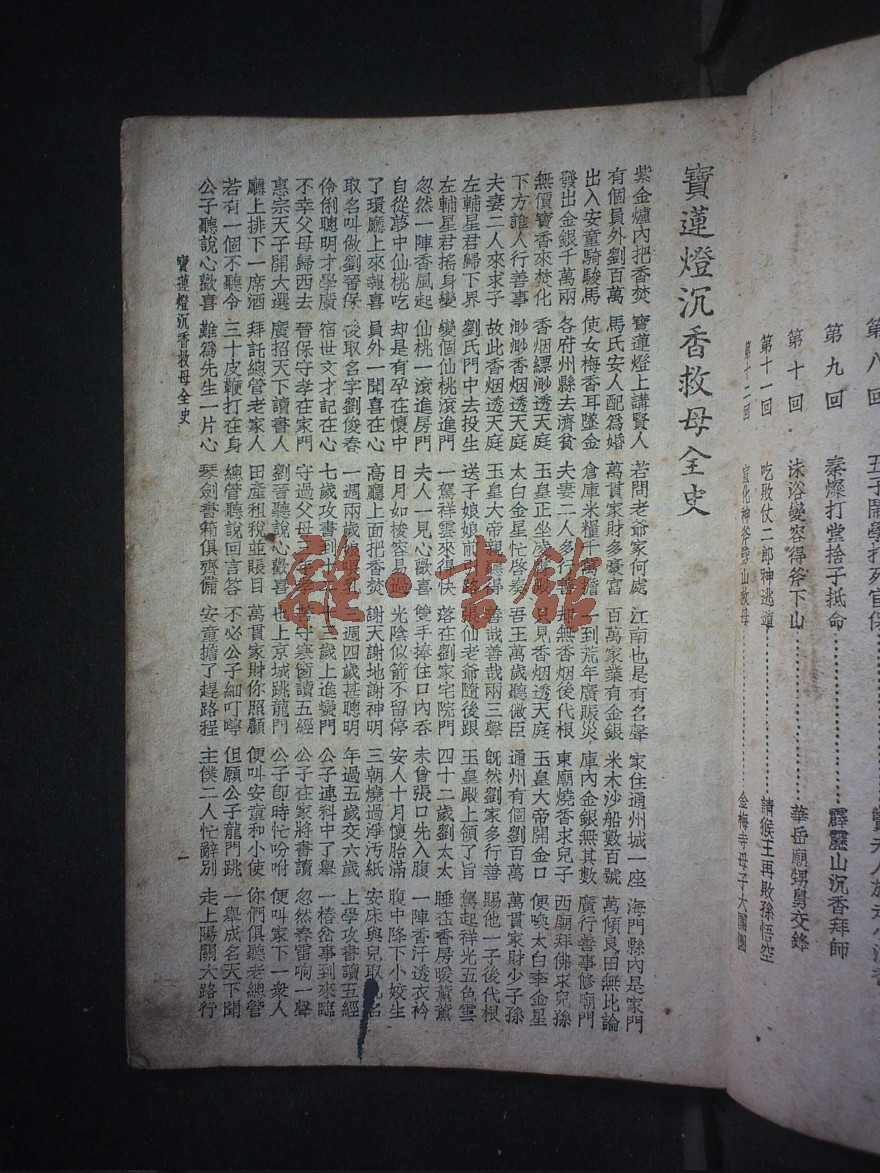 第九回 秦燦打堂捨子抵命 霹靂山沉香拜師
第十回 沐浴變容得斧下山 華岳廟甥舅交鋒
第十一回 吃敗仗二郎神逃遁 請猴王再敗孫悟空
第十二回 宣化神斧劈山救母 金梅寺母子大團圓
寶蓮燈沉香救母全史
紫金爐內把香焚 寶蓮燈上講賢人 若問老爺家何處 江南也是有名聲 家住通州城一座 海門縣內是家門
有個員外劉百萬 馬氏安人配爲婚 萬貫家財多豪富 百萬家業有金銀 米木沙船數百號 萬傾良田無比論
出入安童騎駿馬 使女梅香耳墜金 倉庫米糧千萬擔 一到荒年廣賑災 庫內金銀無其數 廣行善事修廟門
發出金銀千萬兩 各府州縣去濟貧 夫妻二人多行善 却無香烟後代根 東廟燒香求兒子 西廟拜佛求兒孫
無價寶香來焚化 香烟縹渺透天庭 玉皇正坐凌霄殿 只見香烟透天庭 玉皇大帝開金口 便喚太白李金星
下方誰人行善事 渺渺香烟透天庭 太白金星忙啓奏 吾王萬歲聽微臣 通州有個劉百萬 萬貫家財少子孫
夫妻二人來求子 故此香烟透天庭 玉皇大帝親聽得 善哉善哉兩三聲 旣然劉家多行善 賜他一子後代根
左輔星君歸下界 劉氏門中去投生 送子娘娘前引路 張仙老爺隨後跟 玉皇殿上領了旨 駕起祥光五色雲
左輔星君搖身變 變個仙桃滾進門 一駕祥雲來得快 落在劉家宅院門 四十二歲劉太太 睡在香房暖薰薰
忽然一陣香風起 仙桃一滾進房門 夫人一見心歡喜 雙手捧住口內吞 未曾張口先入腹 一陣香汗透衣衿
自從夢中仙桃吃 却是有孕在懷中 日月如梭容易過 光陰似箭不留停 安人十月懷胎滿 腹中降下小姣生
了環廳上來報喜 員外一聞喜在心 高廳上面把香焚 謝天謝地謝神明 三朝燒過淨汚紙 安床與兒取乳名
取名叫做劉晉保 後取名字劉俊春 一週兩歲娘喂乳 三週四歲甚聰明 年過五歲交六歲 上學攻書讀五經
伶俐聰明才學廣 宿世文才記在心 七歲攻書到十二 十三歲上進黌門 公子連科中了舉 一樁岔事到來臨
不幸父母歸西去 晉保守孝在家門 守過父母三年孝 苦守寒窗讀五經 公子在家將書讀 忽然春雷响一聲
惠宗天子開大選 廣招天下讀書人 劉晉聽說心歡喜 也上京城跳龍門 公子卽時忙吩咐 便叫家下一衆人
廳上排下一席酒 拜託總管老家人 田產租稅並賬目 萬貫家財你照顧 便叫安童和小使 你們俱聽老總管
若有一個不聽令 三十皮鞭打在身 總管聽說回言答 不必公子細叮嚀 但願公子龍門跳 一舉成名天下聞
公子聽說心歡喜 難爲先生一片心 琴劍書箱俱齊備 安童擔了趕路程 主僕二人忙辭別 走上陽關大路行
寶蓮燈沉香救母全史 一
雜·書館